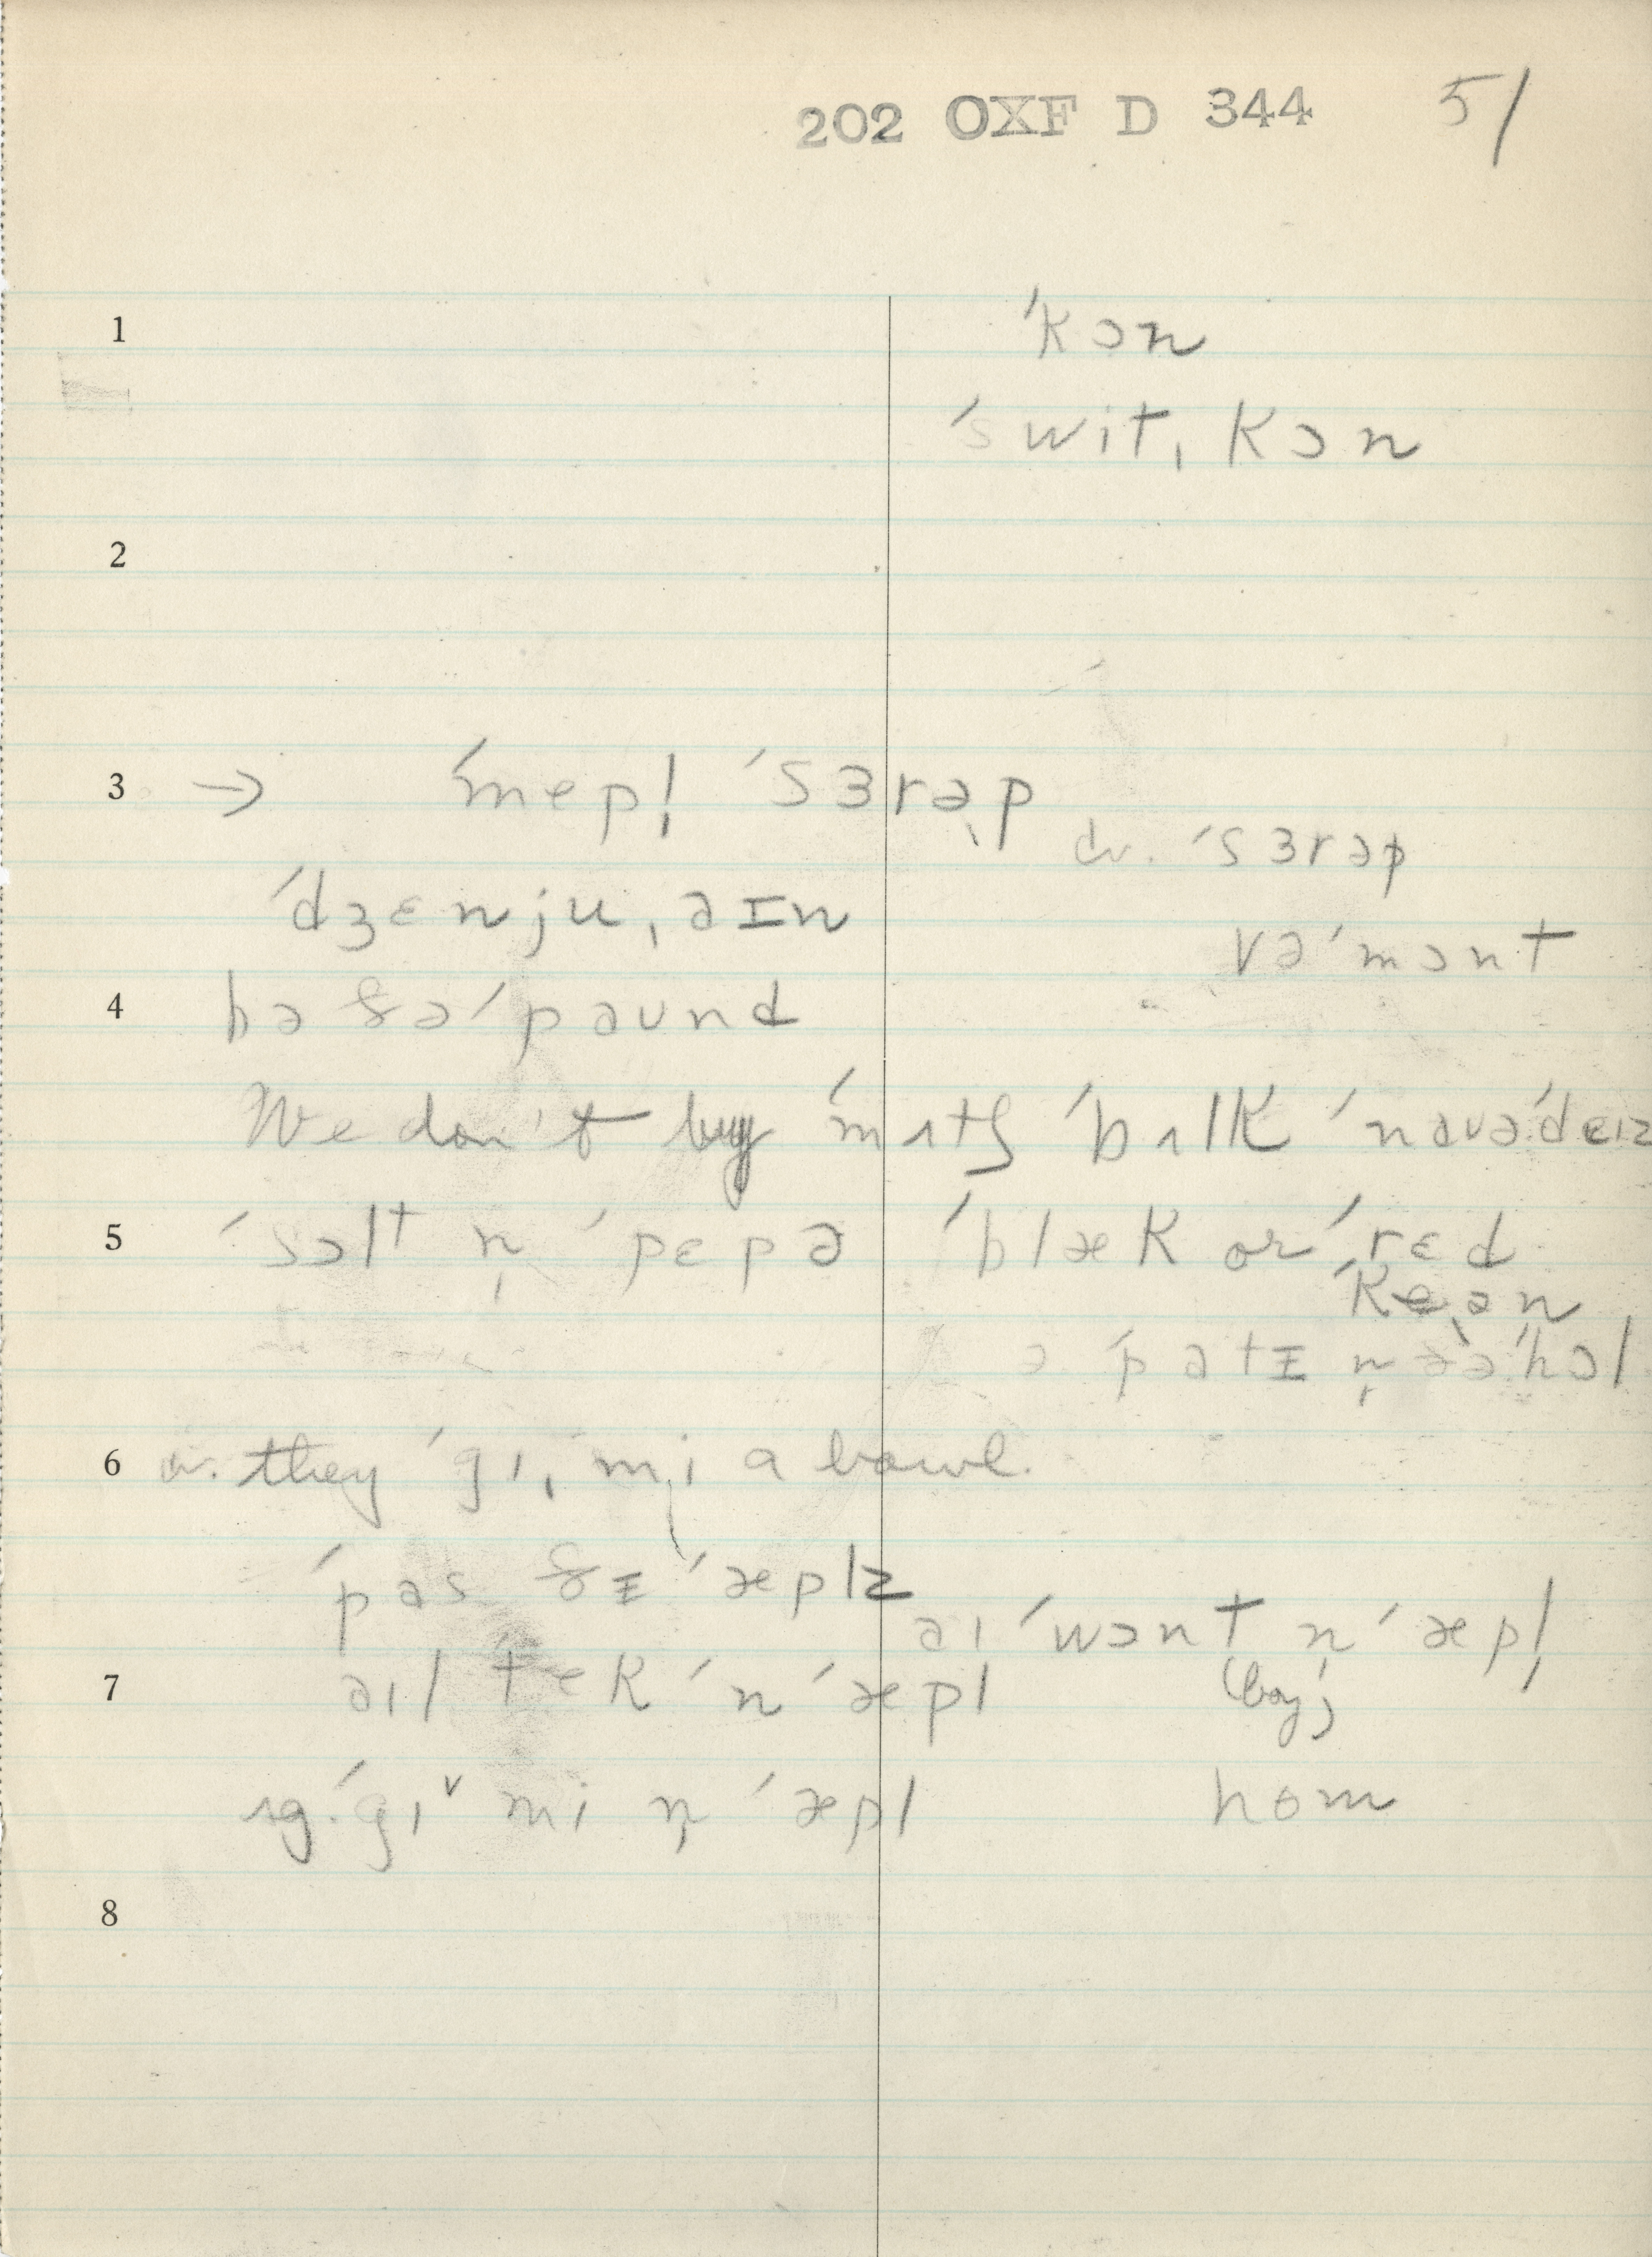 202 OXF D 344 51
1 ˈkɔn
ˈswitˌkɔn
2
3 → ˈmepl̩ ˈsɜrəp
cv. ˈsɜrəp
ˈdʒɛnjuˌəɪn
vəˈmɔnt
4 bə ðəˈpəʊnd
We don't buy ˈmʌtʃ ˈbʌlk ˈnaʊəˈdɛɪz
5 ˈsɔlt n̩ ˈpɛpə ˈblæk or ˈrɛd
ˈkeən
ə ˈpatɪ n̩ əˈhɔl
6 cv. they ˈgɪˌmi a bowl.
ˈpas ðɪ ˈæplz
aɪ ˈwɔnt n ˈæpl̩
7 əɪl ˈtek ˈn ˈæpl (boy)
ˈgɪv mi n̩ ˈæpl hom
8